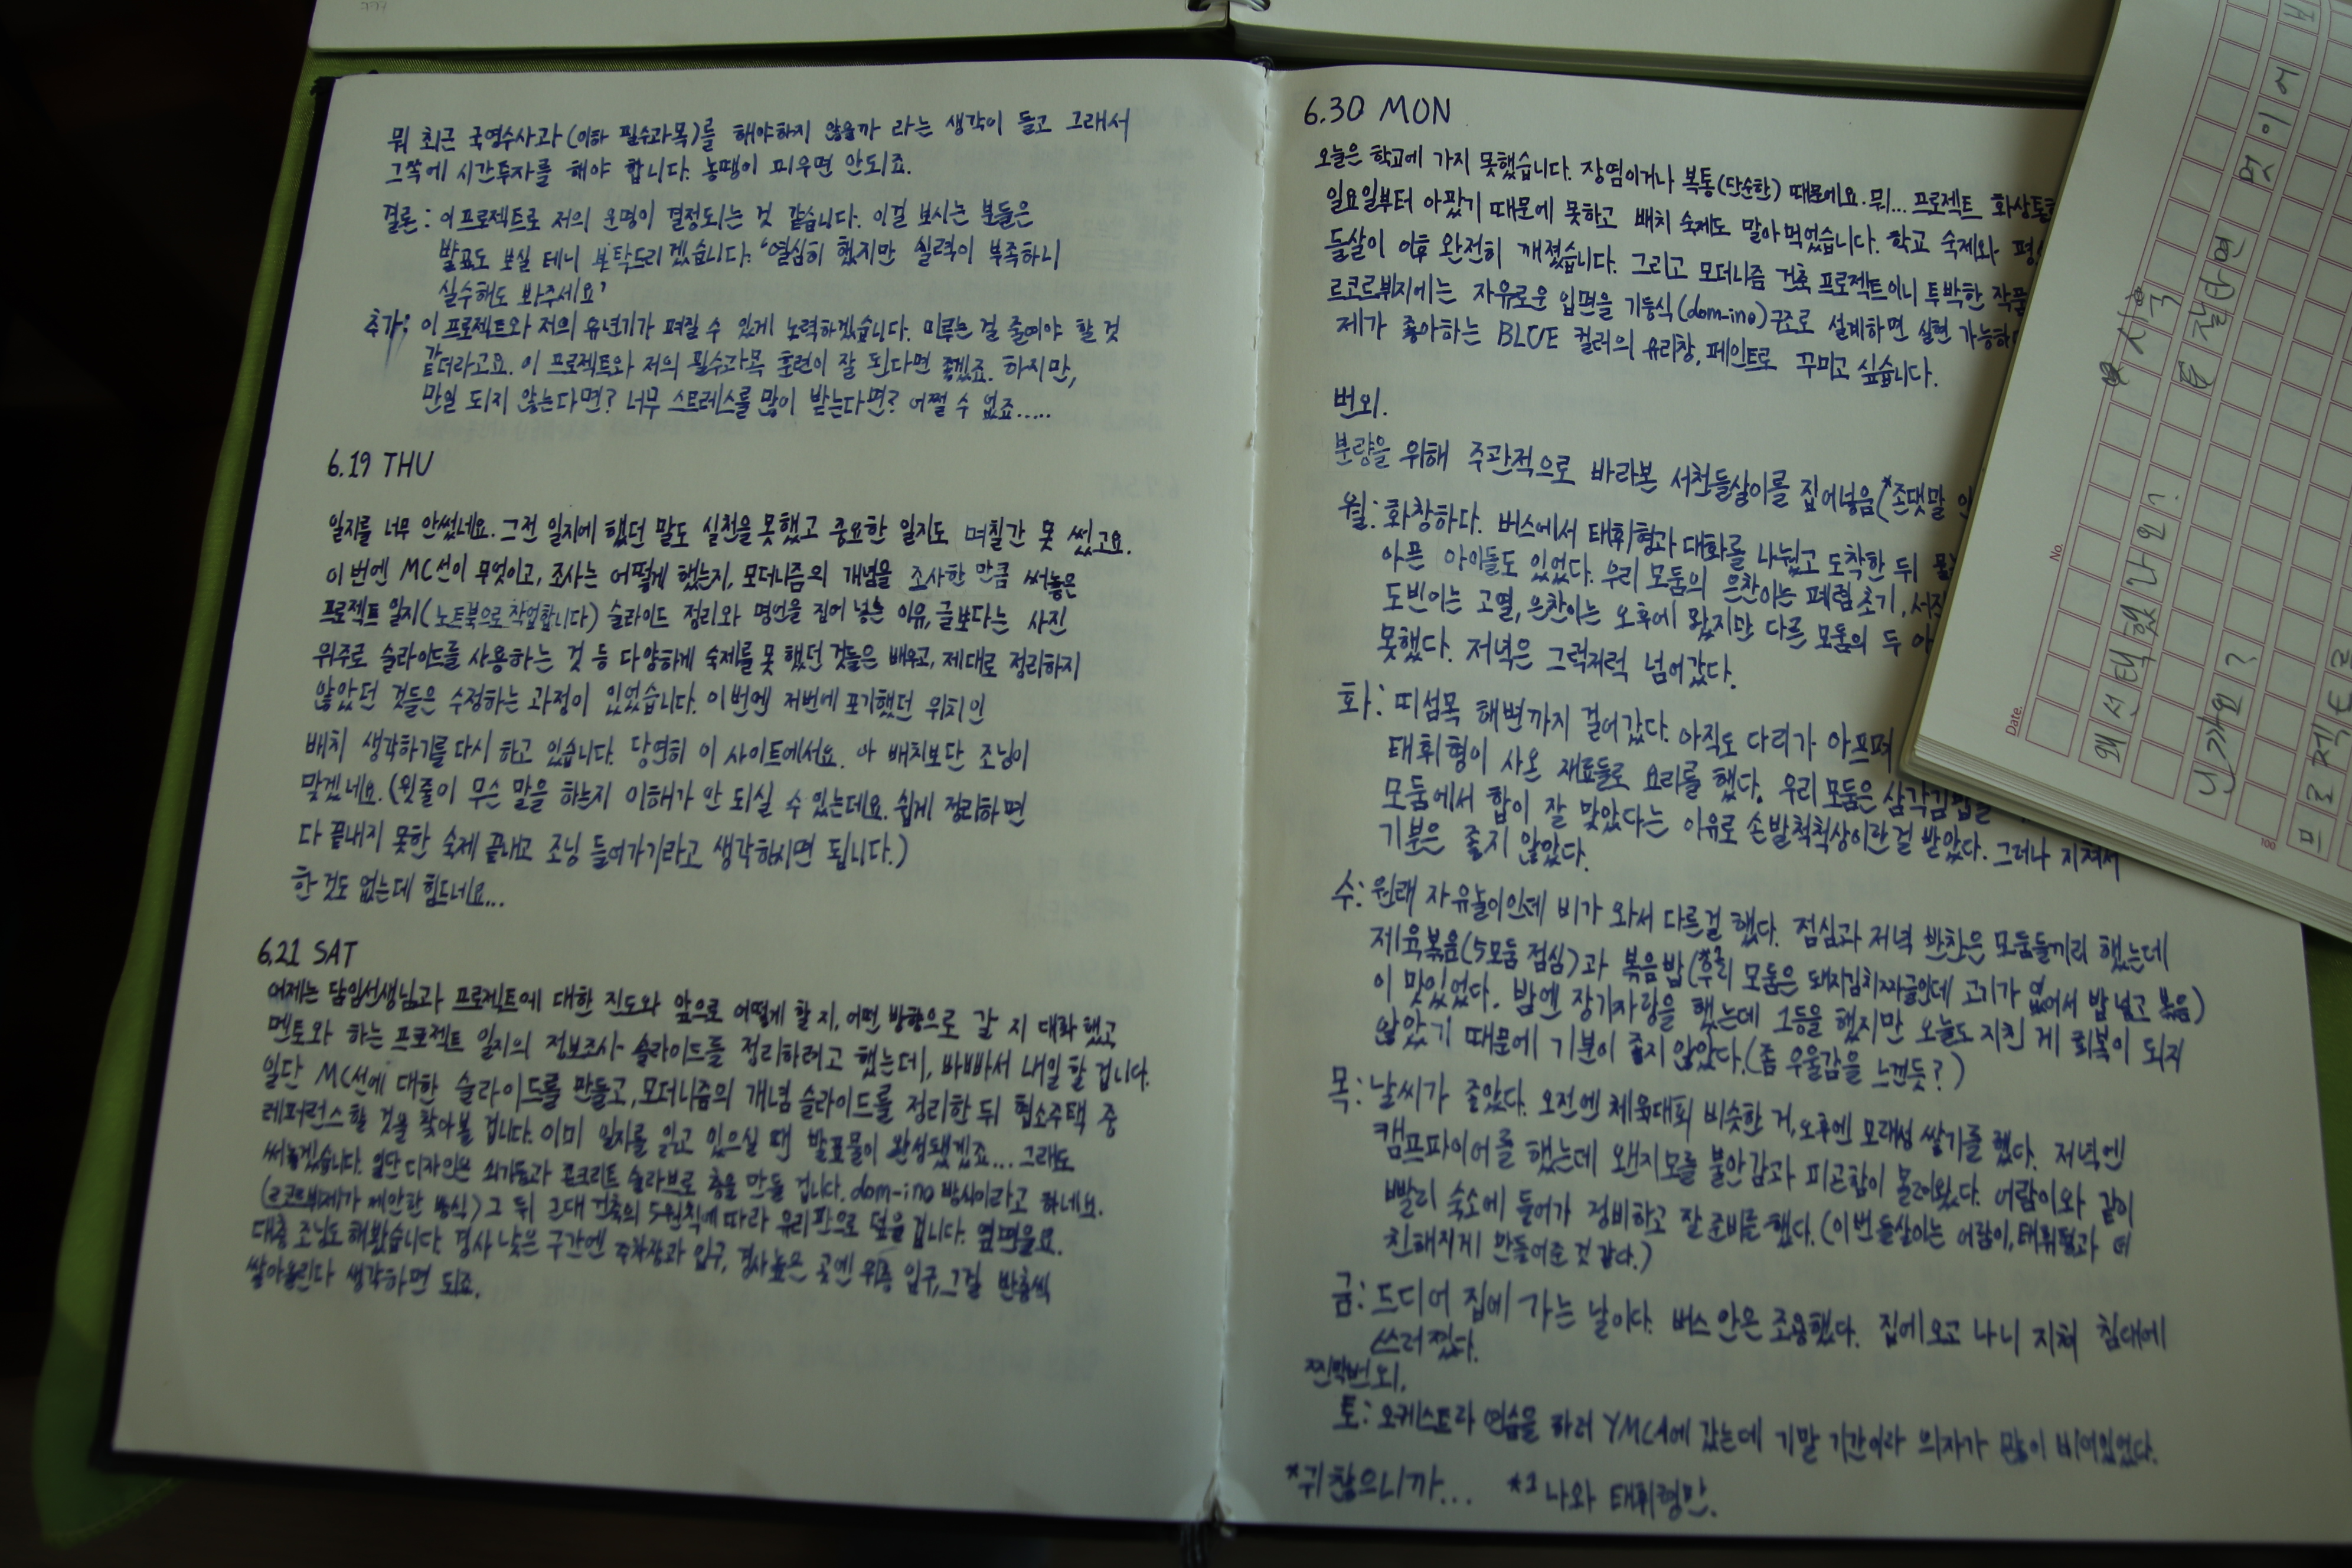 뭐 최근 국영수사과(이하 필수과목)를 해야하지 않을까 라는 생각이 들고 그래서
그쪽에 시간투자를 해야 합니다. 농땡이 피우면 안되죠.
결론: 이 프로젝트로 저의 운명이 결정되는 것 같습니다. 이걸 보시는 분들은
발표도 보실 테니 부탁드리겠습니다. '열심히 했지만 실력이 부족하니
실수해도 봐주세요'
추가: 이 프로젝트와 저의 유년기가 펴질 수 있게 노력하겠습니다. 미루는 걸 줄여야 할 것
같더라고요. 이 프로젝트와 저의 필수과목 훈련이 잘 된다면 좋겠죠. 하지만,
만일 되지 않는다면? 너무 스트레스를 많이 받는다면? 어쩔 수 없죠.....
6.19 THU
일지를 너무 안썼네요. 그전 일지에 했던 말도 실천을 못했고 중요한 일지도 며칠간 못 썼고요.
이번엔 MC선이 무엇이고, 조사는 어떻게 했는지, 모더니즘의 개념을 조사한 만큼 써놓은
프로젝트 일지(노트북으로 작업합니다) 슬라이드 정리와 명언을 집어 넣는 이유, 글보다는 사진
위주로 슬라이드를 사용하는 것 등 다양하게 숙제를 못 했던 것들은 배우고, 제대로 정리하지
않았던 것들은 수정하는 과정이 있었습니다. 이번엔 저번에 포기했던 위치인
배치 생각하기를 다시 하고 있습니다. 당연히 이 사이트에서요. 아 배치보단 조닝이
맞겠네요. (윗줄이 무슨 말을 하는지 이해가 안 되실 수 있는데요. 쉽게 정리하면
다 끝내지 못한 숙제 끝내고 조닝 들어가기라고 생각하시면 됩니다.)
한 것도 없는데 힘드네요...
6.21 SAT
어제는 담임선생님과 프로젝트에 대한 진도와 앞으로 어떻게 할 지, 어떤 방향으로 갈 지 대화했고,
멘토와 하는 프로젝트 일지의 정보조사 슬라이드를 정리하려고 했는데, 바빠서 내일 할 겁니다.
일단 MC선에 대한 슬라이드를 만들고, 모더니즘의 개념 슬라이드를 정리한 뒤 협소주택 중
레퍼런스할 것을 찾아볼 겁니다. 이미 일지를 읽고 있으실 땐 발표물이 완성됐겠죠... 그래도
써놓겠습니다. 일단 디자인은 쇠기둥과 콘크리트 슬라브로 층을 만들 겁니다. dom-ino 방식이라고 하네요.
(르코르뷔제가 제안한 방식) 그 뒤 근대 건축의 5원칙에 따라 유리판으로 덮을 겁니다. 옆면을요.
대충 조닝도 해봤습니다. 경사 낮은 구간엔 주차장과 입구, 경사 높은 곳엔 위층 입구, 그걸 반층씩
쌓아올린다 생각하면 되죠.
6.30 MON
오늘은 학교에 가지 못했습니다. 장염이거나 복통(단순한) 때문에요. 뭐... 프로젝트 화상
일요일부터 아팠기 때문에 못하고 배치 숙제도 말아먹었습니다. 학교 숙제와
들살이 이후 완전히 깨졌습니다. 그리고 모더니즘 건축 프로젝트이니 투박한
르코르뷔지에는 자유로운 입면을 기둥식(dom-ino)구조로 설계하면 실현 가능하
제가 좋아하는 BLUE 컬러의 유리창, 페인트로 꾸미고 싶습니다.
번외.
분량을 위해 주관적으로 바라본 서천들살이를 집어넣음(*존댓말
월: 화창하다. 버스에서 태휘형과 대화를 나눴고 도착한 뒤
아픈 아이들도 있었다. 우리 모둠의 은찬이는 폐렴 초기,
도빈이는 고열, 은찬이는 오후에 왔지만 다른 모둠의 두
못했다. 저녁은 그럭저럭 넘어갔다.
화: 띠섬목 해변까지 걸어갔다. 아직도 다리가 아프며
태휘형이 사온 재료들로 요리를 했다. 우리 모둠은 삼각김밥을
모둠에서 합이 잘 맞았다는 이유로 손발척척상이란걸 받았다. 그러나 지쳐서
기분은 좋지 않았다.
수: 원래 자유놀이인데 비가 와서 다른걸 했다. 점심과 저녁 반찬은 모둠들끼리 했는데
제육볶음(5모둠 점심)과 볶음밥(우리 모둠은 돼지김치찌글인데 고기가 없어서 밥 넣고 볶음)
이 맛있었다. 밤엔 장기자랑을 했는데 1등을 했지만 오늘도 지친 게 회복이 되지
않았기 때문에 기분이 좋지 않았다.(좀 우울감을 느낀듯?)
목: 날씨가 좋았다. 오전엔 체육대회 비슷한 거, 오후엔 모래성 쌓기를 했다. 저녁엔
캠프파이어를 했는데 왠지모를 불안감과 피곤함이 몰려왔다. 어람이와 같이
빨리 숙소에 들어가 정비하고 잘 준비를 했다. (이번 들살이는 어람이, 태휘형과 더
친해지게 만들어준 것 같다.)
금: 드디어 집에 가는 날이다. 버스 안은 조용했다. 집에 오고 나니 지쳐 침대에
쓰러졌다.
찐막번외.
토: 오케스트라 연습을 하러 YMCA에 갔는데 기말 기간이라 의자가 많이 비어있었다.
*귀찮으니까... *1 나와 태휘형만.
No.
Date.
왜 선택했나요?
100